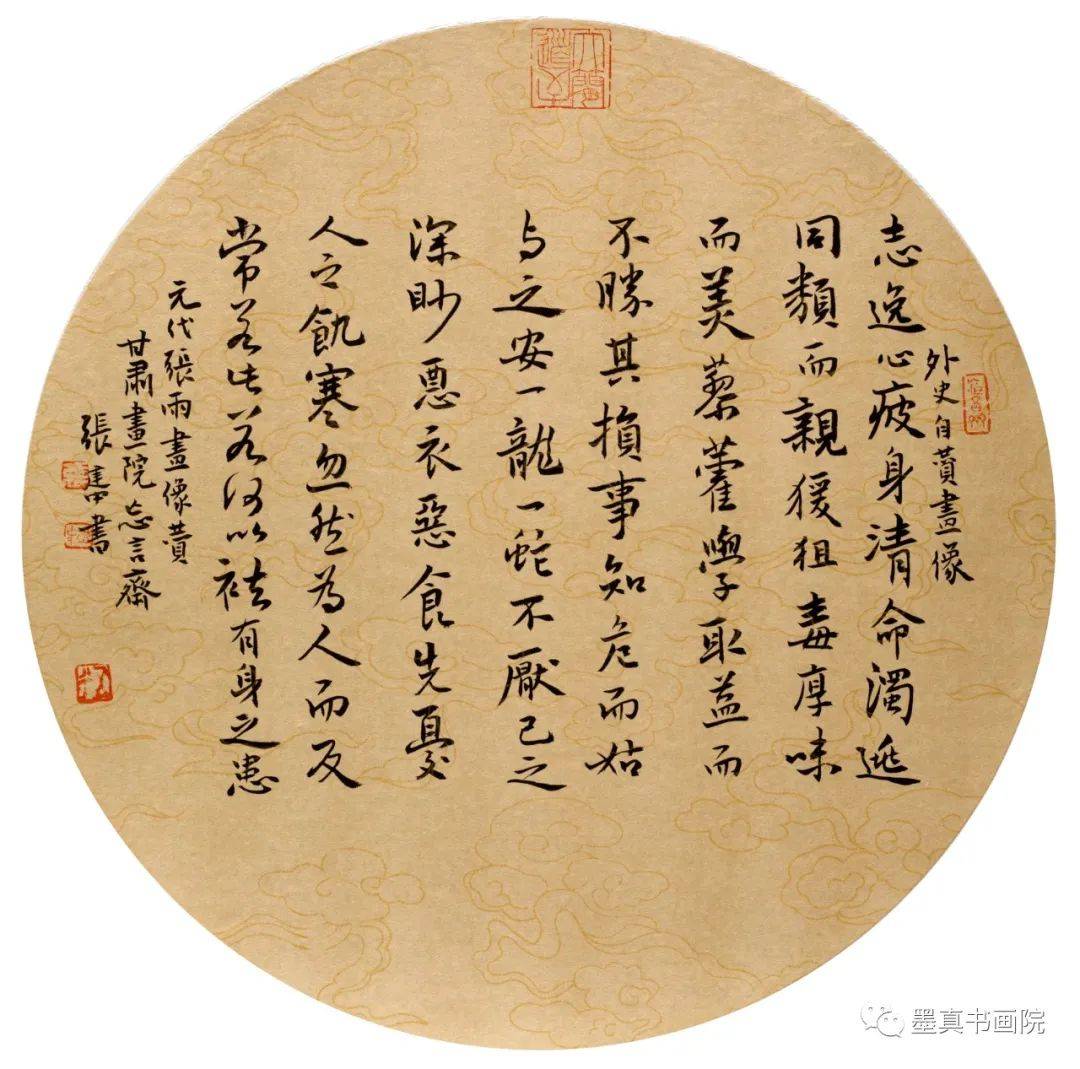 外史自贊畫像
志逸心疲身清命濁逃
同類而親猨狙毒厚味
而美藜藿學取益而
不勝其損事知危而姑
与之安一龍一蛇不厭己之
深眇惡衣惡食先憂
人之飢寒忽然為人而反
常若此若何以祛有身之患
元代張雨畫像贊
甘肅畫院忘言齋
張書
墨真书画院